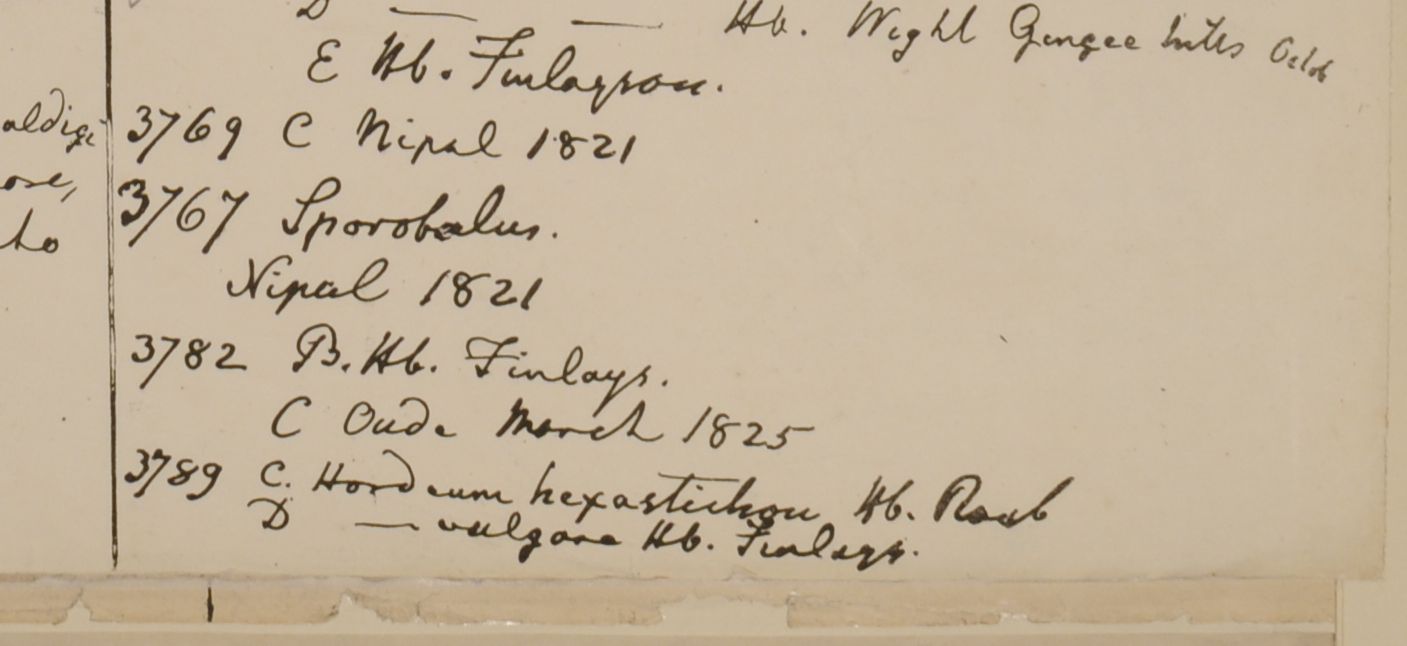 D — — Hb. Wight Gingee hills Octob
E Hb. Finlayson.
3769 C Nipal 1821
3767 Sporobolus.
Nipal 1821
3782 B. Hb. Finlays.
C Oude March 1825
3789 C. Hordeum hexastichon Hb. Roxb
D — vulgare Hb. Finlays.
ose,
to